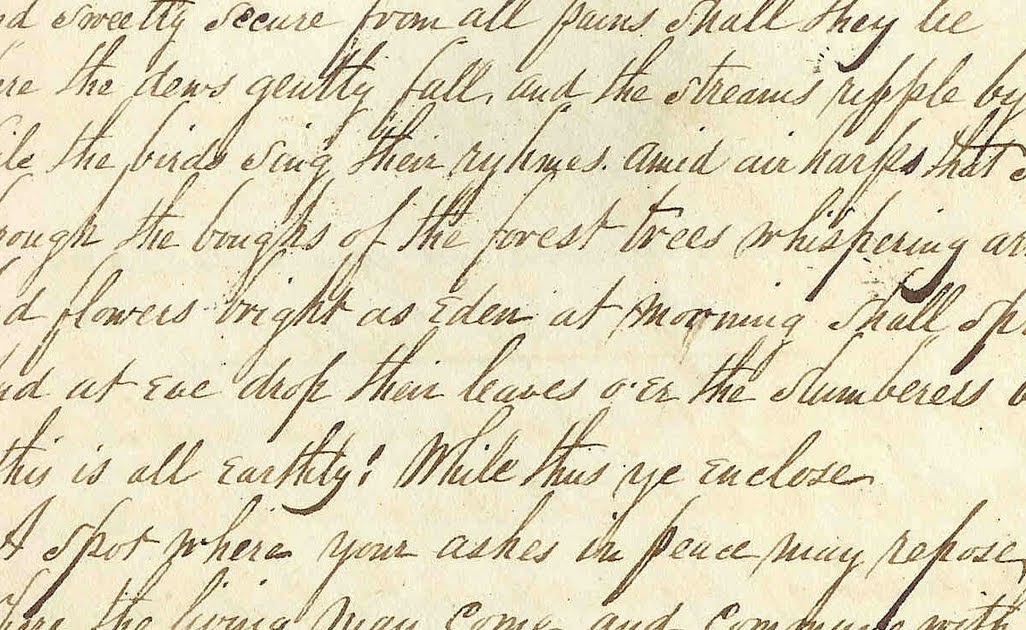 nd sweetly secure from all pains shall they lie
re the dews gently fall, and the streams ripple by
ile the birds sing their ryhmes. amid air harps that s
rough the boughs of the forest trees whispering ar
d flowers bright as Eden at morning shall sp
nd at Eve drop their leaves o'Er the slumberess b
this is all Earthly! While thus ye Enclose
A spot where your ashes in peace may repose,
here the living may Come and Commune with